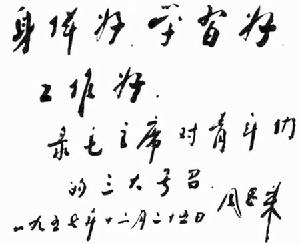 身体好.学習好
工作好.
录毛主席对青年们
的三大号召
周恩来
一九五七年十二月二十五日